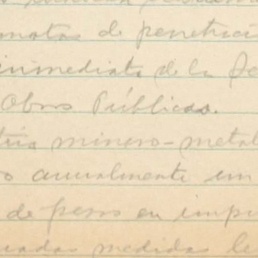 de penetració
inmediata de la
Obras Públicas.
tria minero-metal
o anualmente un
de pesos en impu
uadas medidas le